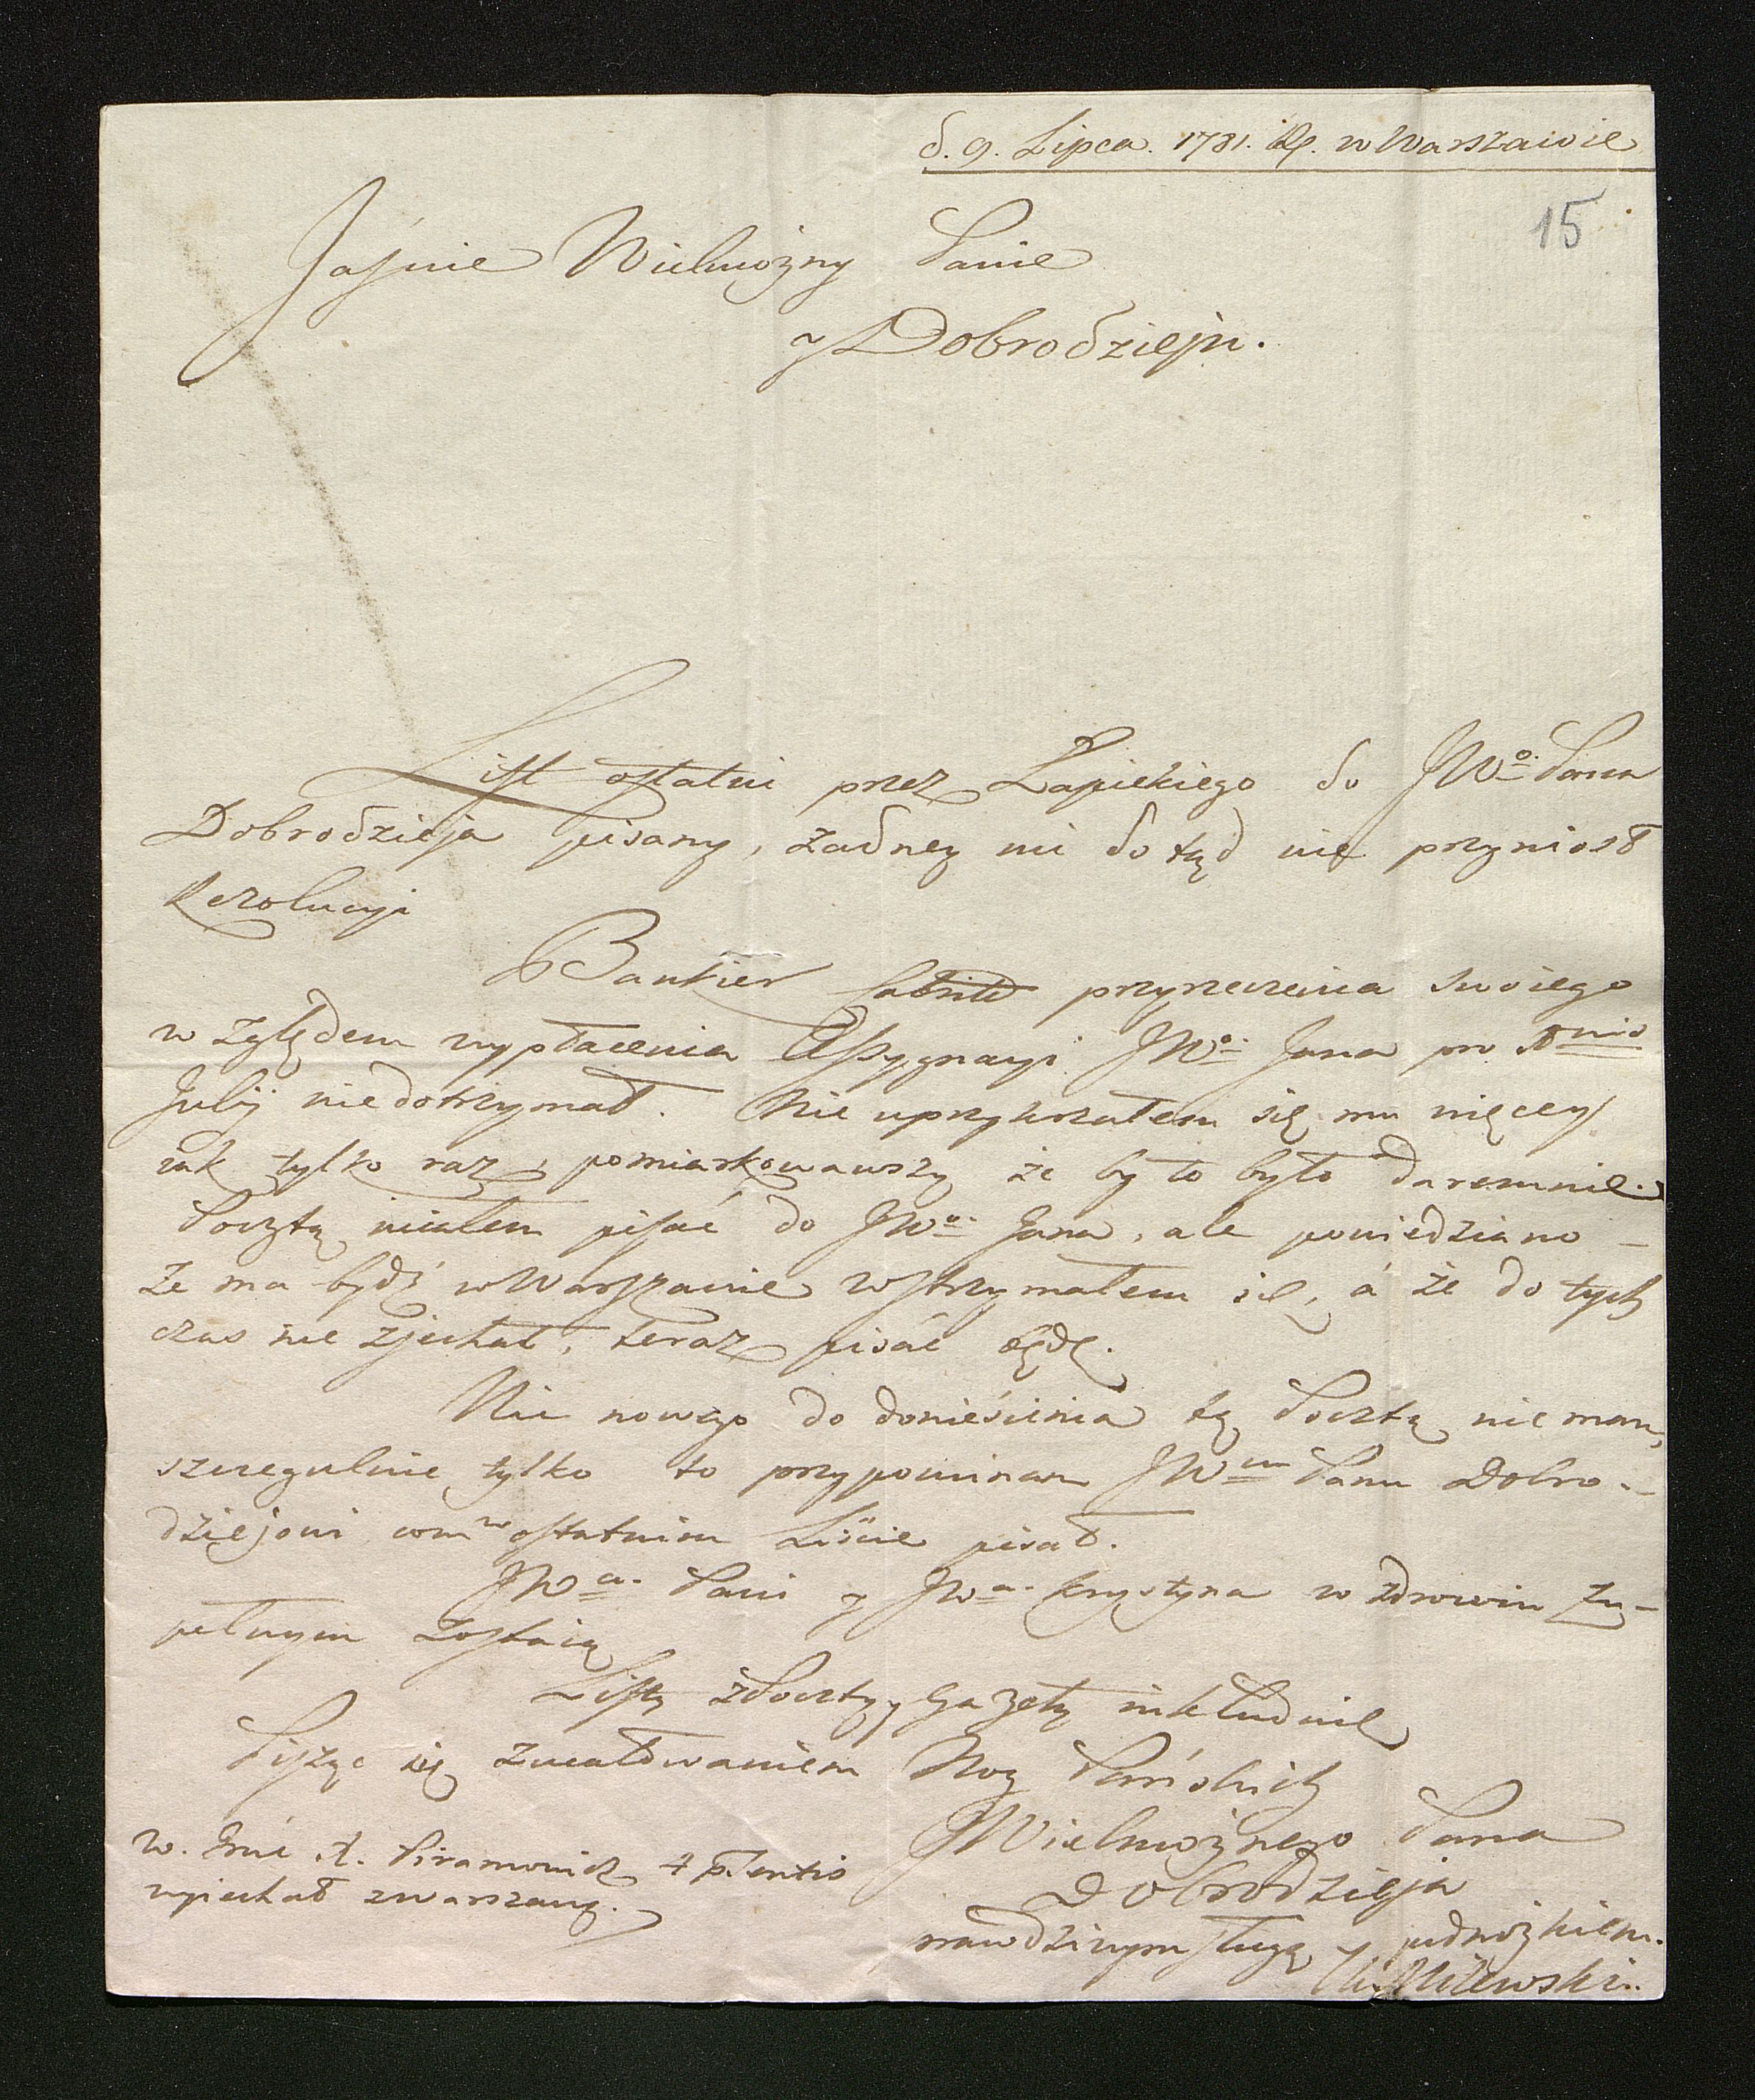 d. 9. Lipca. 1781. R. w Warszawie
15
Jaśnie Wielmożny Panie
y Dobrodzieju.
List ostatni przez Łapickiego do JWo. Pana
Dobrodzieja pisany, żadney mi dotąd nie przyniosł
Rezolucyi
Bankier przyrzeczenia swoiego
względem wypłacenia Assygnacyi JWo. Pana pro
Julij niedotrzymał. Nie uprzykrzałem się mu więcey
iak tylko raz, pomiarkowawszy że by to było daremnie.
Pocztą miałem pisać do JWo. Pana, ale powiedziano
że ma bydź w Warszawie wstrzymałem się, á że do tych
czas nie zjechał, teraz pisać będę.
Nic nowego do doniesienia tą Pocztą nie mam,
szczegulnie tylko to przypominam JWmu Panu Dobro-
dziejowi com w ostatnim Liście pisał.
JWa. Pani y JWa. Krystyna w zdrowiu zu-
pełnym zostaią
Listy z Poczty y Gazety inkluduię
Pisząc się z ucałowaniem Nog Pańskich
JWielmożnego Pana
Dobrodzieja
prawdziwym sługą y podnożkiem.
Milewski.
W. Jmć X. Piramowicz 4 ptentis
wyiechał z Warszawy.